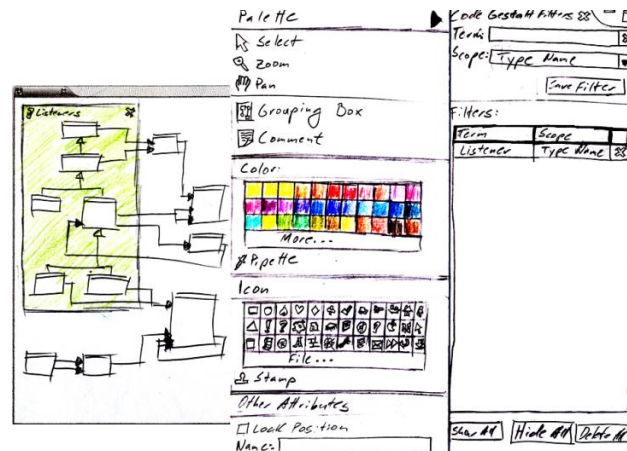 Listeners
Palette
Select
Zoom
Pan
Grouping Box
Comment
Color:
More...
Pipette
Icon
File...
Stamp
Other Attributes
Lock Position
Name:
Code Gestalt Filters
Term:
Scope: Type Name
Save Filter
Filters:
Term Scope
Listener Type Name
Show All Hide All Delete All